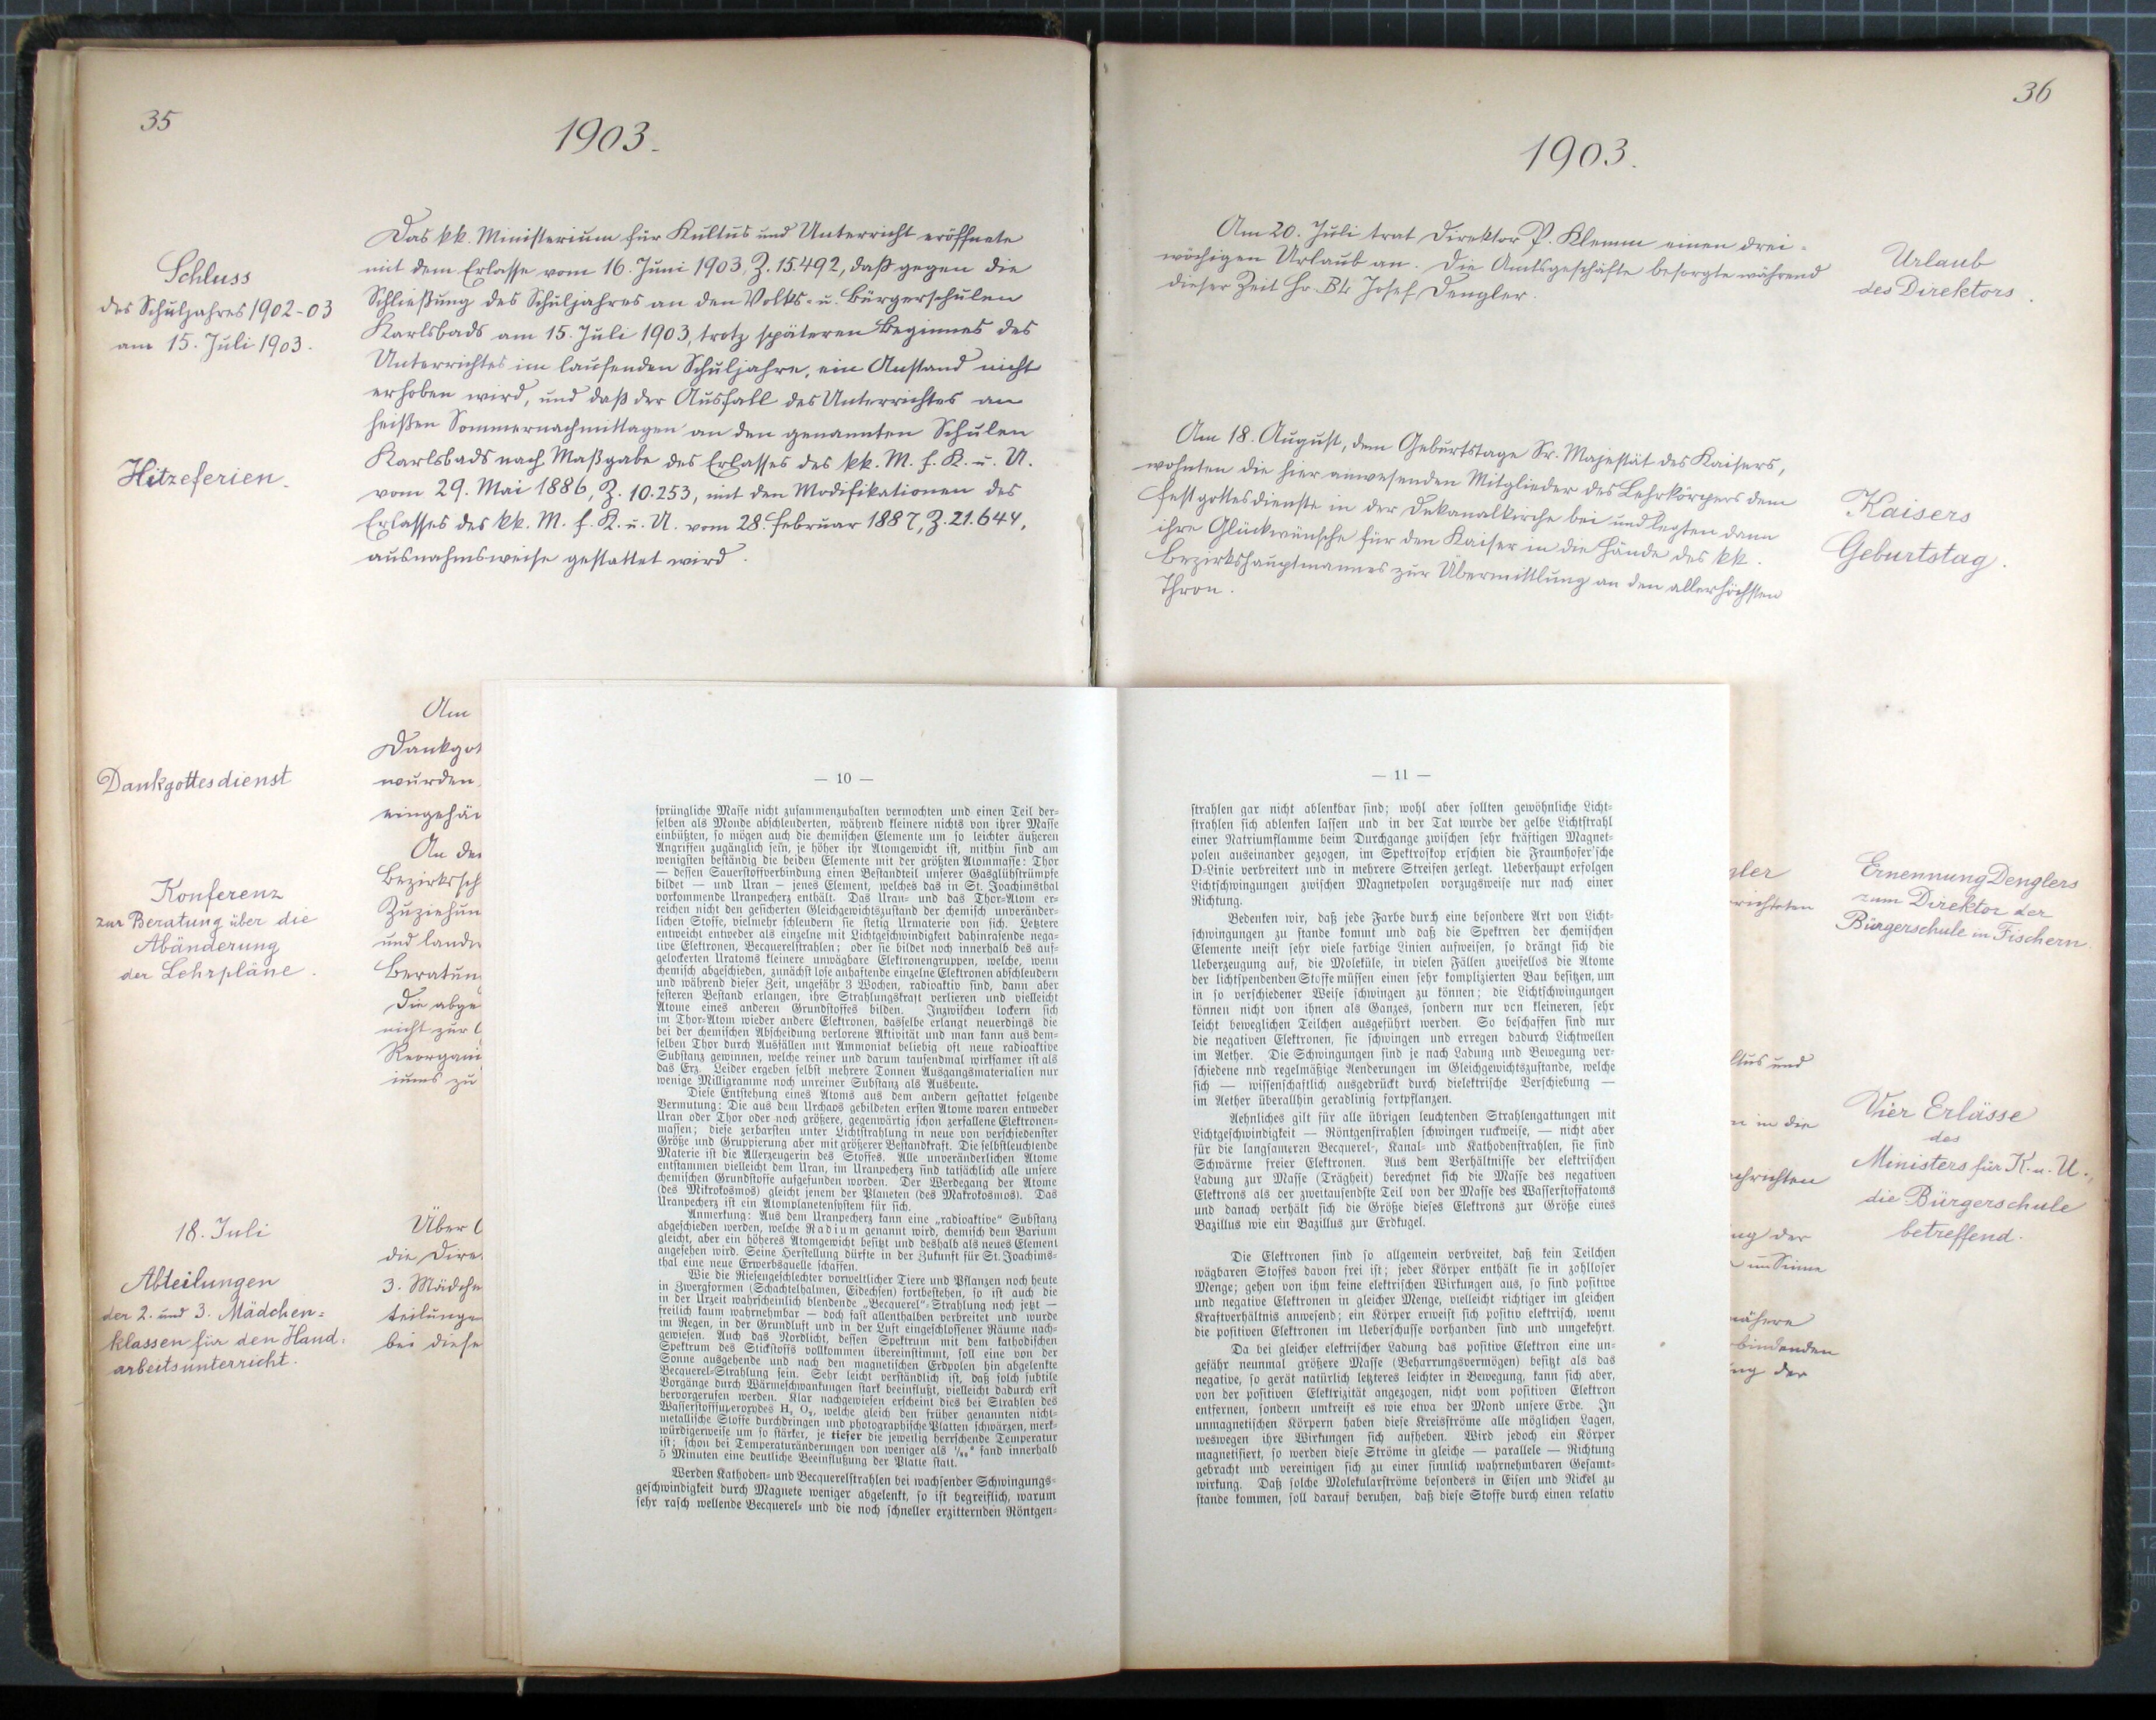 35
1903.
Schluss
des Schuljahres 1902-03
am 15. Juli 1903.
Hitzeferien.
Das kk. Ministerium für Kultus und Unterricht eröffnete
mit dem Erlasse vom 16. Juni 1903, Z. 15.492, daß gegen die
Schließung des Schuljahres an den Volks- u. Bürgerschulen
Karlsbads am 15. Juli 1903, trotz späteren Beginnes des
Unterrichtes im laufenden Schuljahre, ein Anstand nicht
erhoben wird, und daß der Ausfall des Unterrichtes an
heißen Sommernachmittagen an den genannten Schulen
Karlsbads nach Maßgabe des Erlasses des kk. M. f. K. u. U.
vom 29. Mai 1886, Z. 10.253, mit den Modifikationen des
Erlasses des kk. M. f. K. u. U. vom 28. Februar 1887, Z. 21.644,
ausnahmsweise gestattet wird.
Dankgottesdienst
Konferenz
zur Beratung über die
Abänderung
der Lehrpläne.
18. Juli
Abteilungen
der 2. und 3. Mädchen=
klassen für den Hand=
arbeitsunterricht.
Am
Dankgot
wurden
eingehän
An der
Bezirkssch
Zuziehun
und landw
Beratun
Die abge
nicht zur
Reorgani
iums zu
Über
die Dire
3. Mädche
teilunge
bei diese
— 10 —
sprüngliche Masse nicht zusammenzuhalten vermochten und einen Teil der-
selben als Monde abschleuderten, während kleinere nichts von ihrer Masse
einbüßten, so mögen auch die chemischen Elemente um so leichter äußeren
Angriffen zugänglich sein, je höher ihr Atomgewicht ist, mithin sind am
wenigsten beständig die beiden Elemente mit der größten Atommasse: Thor
— dessen Sauerstoffverbindung einen Bestandteil unserer Gasglühstrümpfe
bildet — und Uran — jenes Element, welches das in St. Joachimsthal
vorkommende Uranpecherz enthält. Das Uran- und das Thor-Atom er-
reichen nicht den gesicherten Gleichgewichtszustand der chemisch unveränder-
lichen Stoffe, vielmehr schleudern sie stetig Urmaterie von sich. Letztere
entweicht entweder als einzelne mit Lichtgeschwindigkeit dahinrasende nega-
tive Elektronen, Becquerelstrahlen; oder sie bildet noch innerhalb des auf-
gelockerten Uratoms kleinere unwägbare Elektronengruppen, welche, wenn
chemisch abgeschieden, zunächst lose anhaftende einzelne Elektronen abschleudern
und während dieser Zeit, ungefähr 3 Wochen, radioaktiv sind, dann aber
festeren Bestand erlangen, ihre Strahlungskraft verlieren und vielleicht
Atome eines anderen Grundstoffes bilden. Inzwischen lockern sich
im Thor-Atom wieder andere Elektronen, dasselbe erlangt neuerdings die
bei der chemischen Abscheidung verlorene Aktivität und man kann aus dem-
selben Thor durch Ausfällen mit Ammoniak beliebig oft neue radioaktive
Substanz gewinnen, welche reiner und darum tausendmal wirksamer ist als
das Erz. Leider ergeben selbst mehrere Tonnen Ausgangsmaterialien nur
wenige Milligramme noch unreiner Substanz als Ausbeute.
Diese Entstehung eines Atoms aus dem andern gestattet folgende
Vermutung: Die aus dem Urchaos gebildeten ersten Atome waren entweder
Uran oder Thor oder noch größere, gegenwärtig schon zerfallene Elektronen-
massen; diese zerbarsten unter Lichtstrahlung in neue von verschiedenster
Größe und Gruppierung aber mit größerer Bestandkraft. Die selbstleuchtende
Materie ist die Allerzeugerin des Stoffes. Alle unveränderlichen Atome
entstammen vielleicht dem Uran, im Uranpecherz sind tatsächlich alle unsere
chemischen Grundstoffe aufgefunden worden. Der Werdegang der Atome
(des Mikrokosmos) gleicht jenem der Planeten (des Makrokosmos). Das
Uranpecherz ist ein Atomplanetensystem für sich.
Anmerkung: Aus dem Uranpecherz kann eine „radioaktive" Substanz
abgeschieden werden, welche Radium genannt wird, chemisch dem Barium
gleicht, aber ein höheres Atomgewicht besitzt und deshalb als neues Element
angesehen wird. Seine Herstellung dürfte in der Zukunft für St. Joachims-
thal eine neue Erwerbsquelle schaffen.
Wie die Riesengeschlechter vorweltlicher Tiere und Pflanzen noch heute
in Zwergformen (Schachtelhalmen, Eidechsen) fortbestehen, so ist auch die
in der Urzeit wahrscheinlich blendende „Becquerel"-Strahlung noch jetzt —
freilich kaum wahrnehmbar — doch fast allenthalben verbreitet und wurde
im Regen, in der Grundluft und in der Luft eingeschlossener Räume nach-
gewiesen. Auch das Nordlicht, dessen Spektrum mit dem kathodischen
Spektrum des Stickstoffs vollkommen übereinstimmt, soll eine von der
Sonne ausgehende und nach den magnetischen Erdpolen hin abgelenkte
Becquerel-Strahlung sein. Sehr leicht verständlich ist, daß solch subtile
Vorgänge durch Wärmeschwankungen stark beeinflußt, vielleicht dadurch erst
hervorgerufen werden. Klar nachgewiesen erscheint dies bei Strahlen des
Wasserstoffsuperoxydes H₂ O₂, welche gleich den früher genannten nicht-
metallische Stoffe durchdringen und photographische Platten schwärzen, merk-
würdigerweise um so stärker, je tiefer die jeweilig herrschende Temperatur
ist; schon bei Temperaturänderungen von weniger als fand innerhalb
5 Minuten eine deutliche Beeinflußung der Platte statt.
Werden Kathoden- und Becquerelstrahlen bei wachsender Schwingungs-
geschwindigkeit durch Magnete weniger abgelenkt, so ist begreiflich, warum
sehr rasch wellende Becquerel- und die noch schneller erzitternden Röntgen-
36
1903.
Am 20. Juli trat Direktor P. Klemm einen drei-
wöchigen Urlaub an. Die Amtsgeschäfte besorgte während
dieser Zeit Hr. BL Josef Dengler.
Urlaub
des Direktors.
Am 18. August, dem Geburtstage Sr. Majestät des Kaisers,
wohnten die hier anwesenden Mitglieder des Lehrkörpers dem
Festgottesdienste in der Dekanalkirche bei und legten dann
ihre Glückwünsche für den Kaiser in die Hände des kk.
Bezirkshauptmannes zur Übermittlung an den allerhöchsten
Thron.
Kaisers
Geburtstag.
— 11 —
strahlen gar nicht ablenkbar sind; wohl aber sollten gewöhnliche Licht-
strahlen sich ablenken lassen und in der Tat wurde der gelbe Lichtstrahl
einer Natriumflamme beim Durchgange zwischen sehr kräftigen Magnet-
polen auseinander gezogen, im Spektroskop erschien die Fraunhofer'sche
D-Linie verbreitert und in mehrere Streifen zerlegt. Ueberhaupt erfolgen
Lichtschwingungen zwischen Magnetpolen vorzugsweise nur nach einer
Richtung.
Bedenken wir, daß jede Farbe durch eine besondere Art von Licht-
schwingungen zu stande kommt und daß die Spektren der chemischen
Elemente meist sehr viele farbige Linien aufweisen, so drängt sich die
Ueberzeugung auf, die Moleküle, in vielen Fällen zweifellos die Atome
der lichtspendenden Stoffe müssen einen sehr komplizierten Bau besitzen, um
in so verschiedener Weise schwingen zu können; die Lichtschwingungen
können nicht von ihnen als Ganzes, sondern nur von kleineren, sehr
leicht beweglichen Teilchen ausgeführt werden. So beschaffen sind nur
die negativen Elektronen, sie schwingen und erregen dadurch Lichtwellen
im Aether. Die Schwingungen sind je nach Ladung und Bewegung ver-
schiedene nnd regelmäßige Aenderungen im Gleichgewichtszustande, welche
sich — wissenschaftlich ausgedrückt durch dielektrische Verschiebung —
im Aether überallhin geradlinig fortpflanzen.
Aehnliches gilt für alle übrigen leuchtenden Strahlengattungen mit
Lichtgeschwindigkeit — Röntgenstrahlen schwingen ruckweise, — nicht aber
für die langsameren Becquerel-, Kanal- und Kathodenstrahlen, sie sind
Schwärme freier Elektronen. Aus dem Verhältnisse der elektrischen
Ladung zur Masse (Trägheit) berechnet sich die Masse des negativen
Elektrons als der zweitausendste Teil von der Masse des Wasserstoffatoms
und danach verhält sich die Größe dieses Elektrons zur Größe eines
Bazillus wie ein Bazillus zur Erdkugel.
Die Elektronen sind so allgemein verbreitet, daß kein Teilchen
wägbaren Stoffes davon frei ist; jeder Körper enthält sie in zahlloser
Menge; gehen von ihm keine elektrischen Wirkungen aus, so sind positive
und negative Elektronen in gleicher Menge, vielleicht richtiger im gleichen
Kraftverhältnis anwesend; ein Körper erweist sich positiv elektrisch, wenn
die positiven Elektronen im Ueberschusse vorhanden sind und umgekehrt.
Da bei gleicher elektrischer Ladung das positive Elektron eine un-
gefähr neunmal größere Masse (Beharrungsvermögen) besitzt als das
negative, so gerät natürlich letzteres leichter in Bewegung, kann sich aber,
von der positiven Elektrizität angezogen, nicht vom positiven Elektron
entfernen, sondern umkreist es wie etwa der Mond unsere Erde. In
unmagnetischen Körpern haben diese Kreisströme alle möglichen Lagen,
weswegen ihre Wirkungen sich aufheben. Wird jedoch ein Körper
magnetisiert, so werden diese Ströme in gleiche — parallele — Richtung
gebracht und vereinigen sich zu einer sinnlich wahrnehmbaren Gesamt-
wirkung. Daß solche Molekularströme besonders in Eisen und Nickel zu
stande kommen, soll darauf beruhen, daß diese Stoffe durch einen relativ
gler
richteten
ltus und
n in die
chrichten
ng der
im Sinne
nähere
bindenden
ng der
Ernennung Denglers
zum Direktor der
Bürgerschule in Fischern.
Vier Erlässe
des
Ministers für K. u. U.,
die Bürgerschule
betreffend.